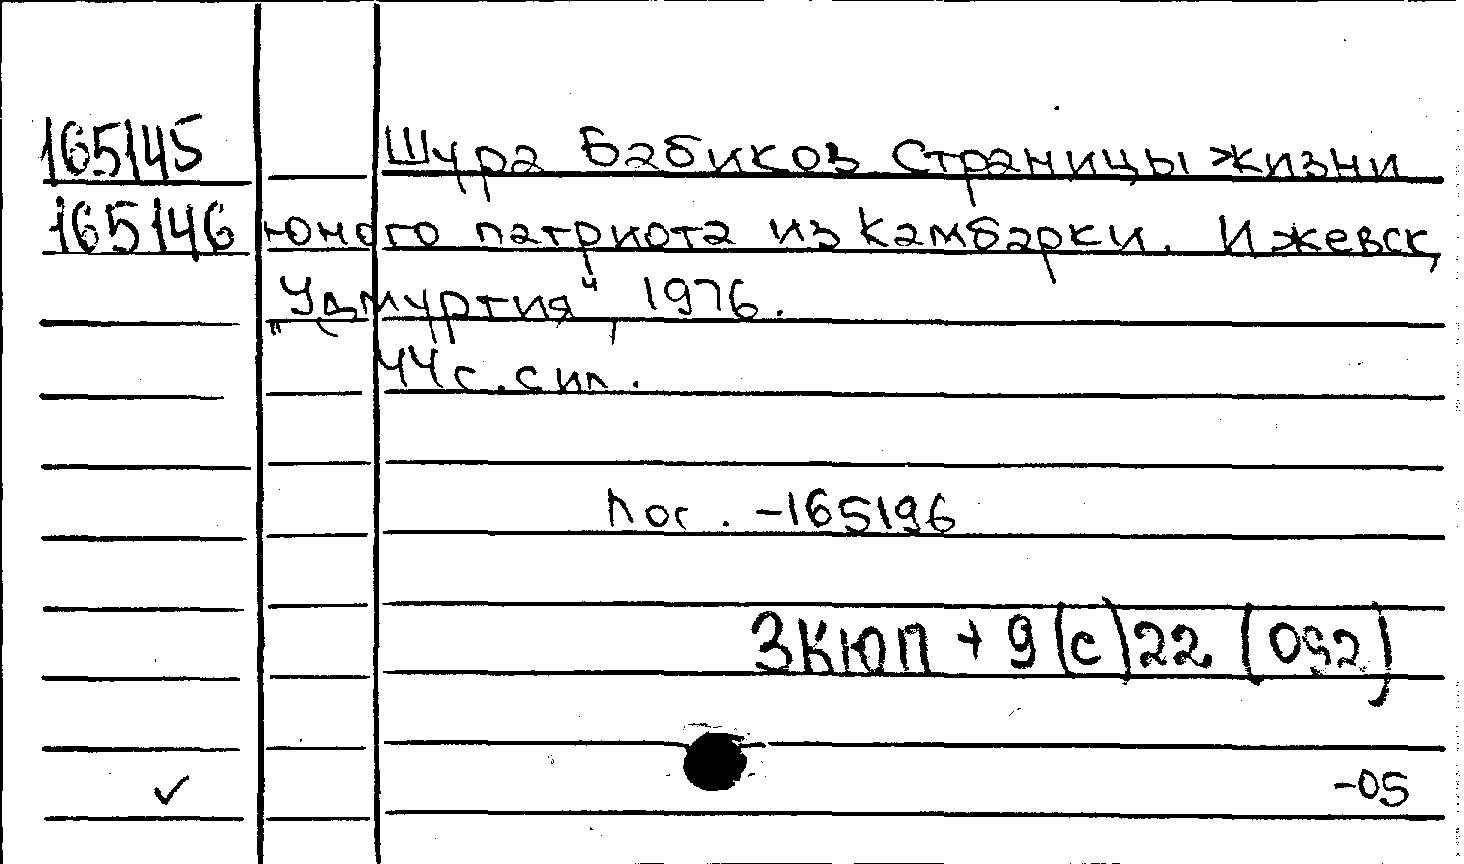 165145 Шура Бабиков Страницы жизни
165146 юного патриота из Камбарки. Ижевск,
"Удмуртия", 1976.
44с. с ил.
Пос. -165196
3КЮП + 9(с)22 (092)
-05